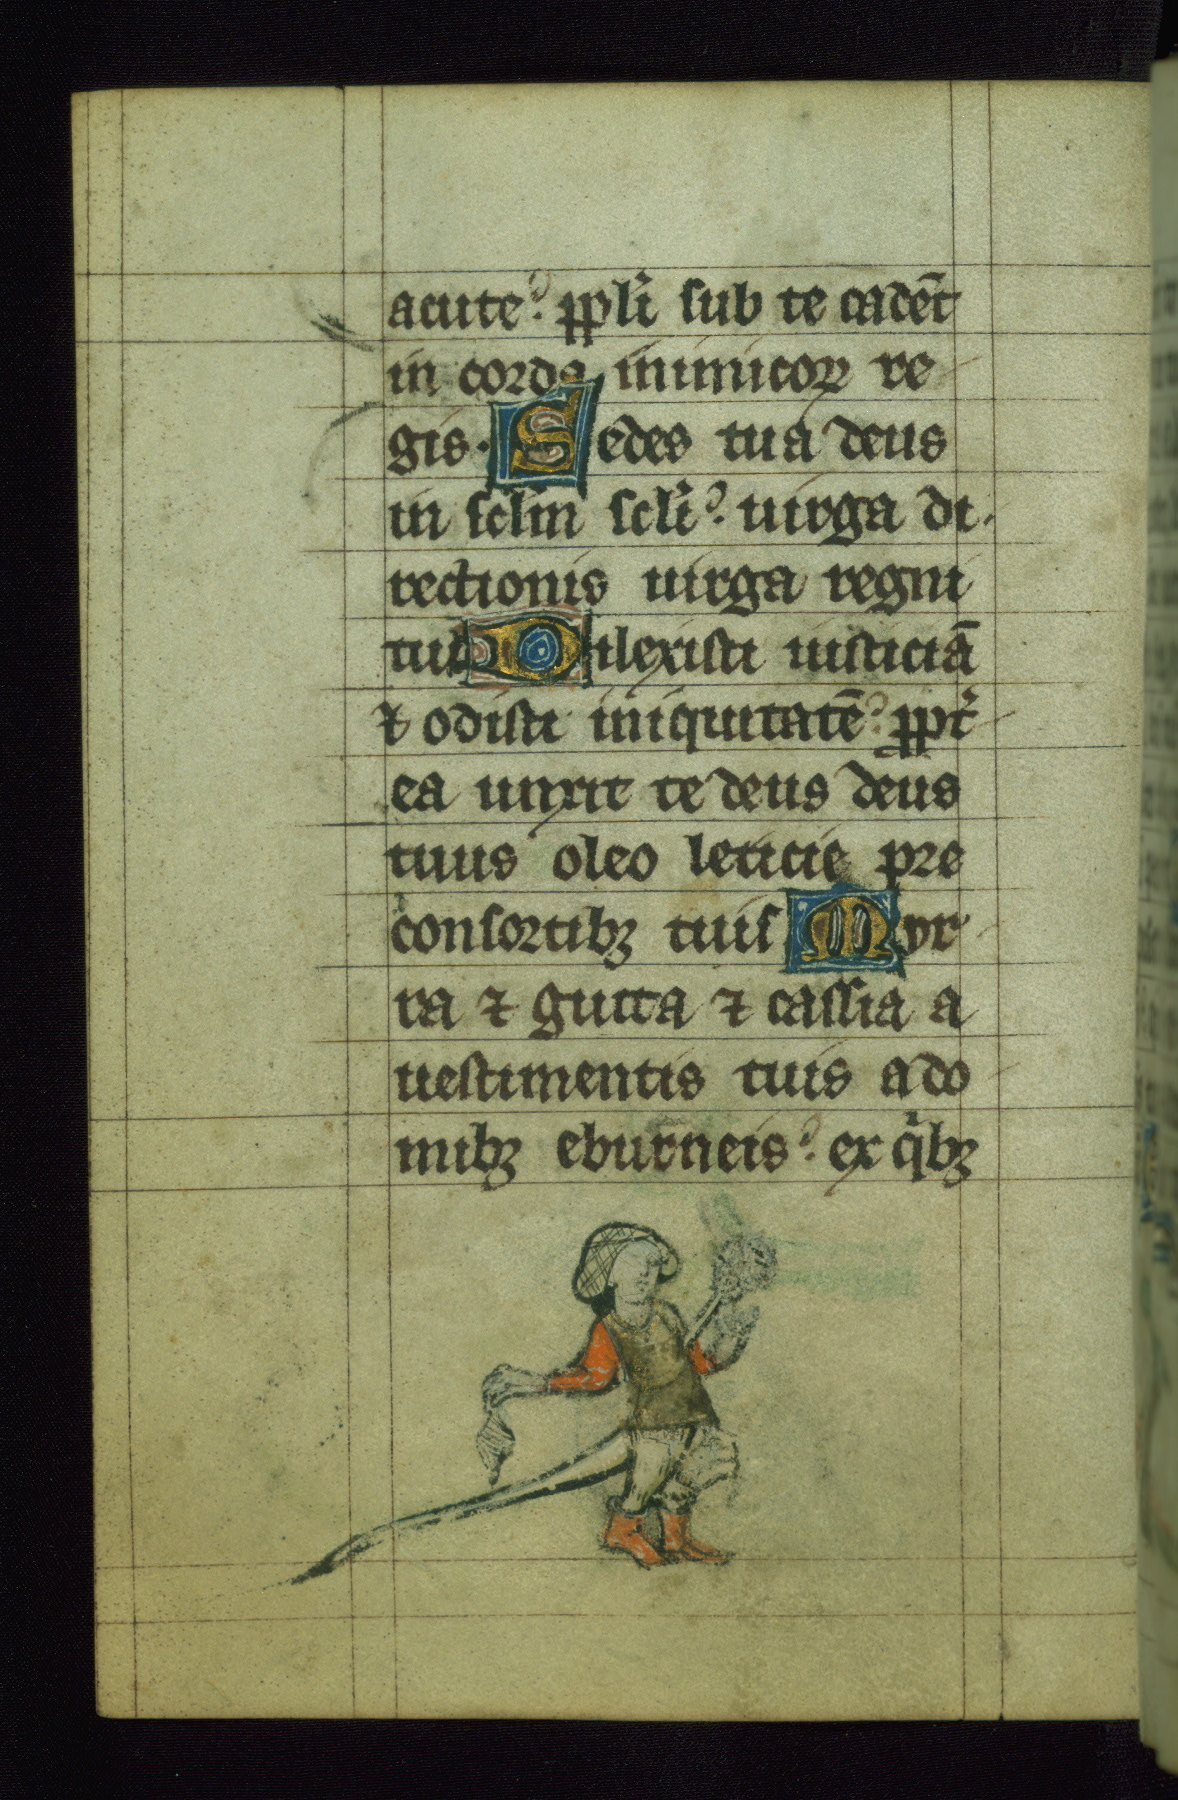 acute? ppl̃i sub te cadẽt
in corda inimicoꝝ re
gis. Sedes tua deus
in sclm̃ scl̃i? uirga di
rectionis uirga regni
tui Dilexisti iusticiã
⁊ odisti iniquitatẽ? ꝓpt̾
ea unxit te deus deus
tuus oleo leticie pre
consortibꝫ tuis Myr
ra ⁊ gutta ⁊ cassia a
uestimentis tuis a do
mibꝫ eburneis? ex qͥbꝫ